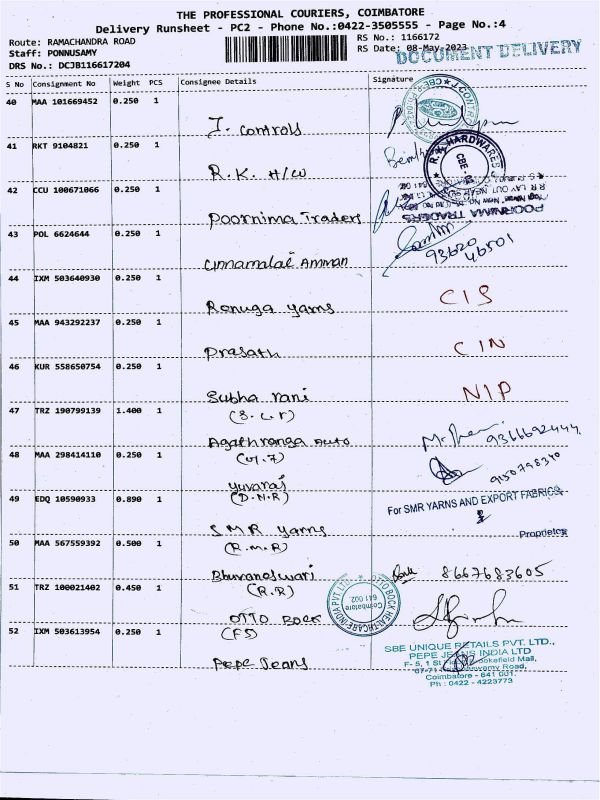 THE PROFESSIONAL COURIERS, COIMBATORE
Delivery Runsheet - PC2 - Phone No.:0422-3505555 - Page No.:4
Route: RAMACHANDRA ROAD
RS No.: 1166172
Staff: PONNUSAMY
RS Date: 08-May-2023
DOCUMENT DELIVERY
DRS No.: DCJB116617204
S No Consignment No Weight PCS Consignee Details Signature
40 MAA 101669452 0.250 1
J. Controls
41 RKT 9104821 0.250 1
R.K. H/W
R.K. HARDWARES
CBE
42 CCU 100671066 0.250 1
Poornima Traders
POORNIMA TRADERS
43 POL 6624644 0.250 1
Annamalai Amman
93620
46501
44 IXM 503640930 0.250 1
Renuga yarns
CIS
45 MAA 943292237 0.250 1
Prasath
CIN
46 KUR 558650754 0.250 1
Subha rani
NIP
47 TRZ 190799139 1.400 1
Agathranga Auto
9366692444
48 MAA 298414110 0.250 1
yuvaraj
9150798340
49 EDQ 10590933 0.890 1
(D.N.R)
SMR yarns
For SMR YARNS AND EXPORT FABRICS
Proprietor
50 MAA 567559392 0.500 1
(R.M.R)
Bhuvaneshwari
8667683605
51 TRZ 100021402 0.450 1
(R.R)
OTTO BOCK
OTTO BOCK HEALTHCARE INDIA PVT LTD
Coimbatore
641 002
52 IXM 503613954 0.250 1
(FS)
Pepe Jeans
SBE UNIQUE RETAILS PVT. LTD.,
PEPE JEANS INDIA LTD
Coimbatore - 641 001.
Ph : 0422 - 4223773